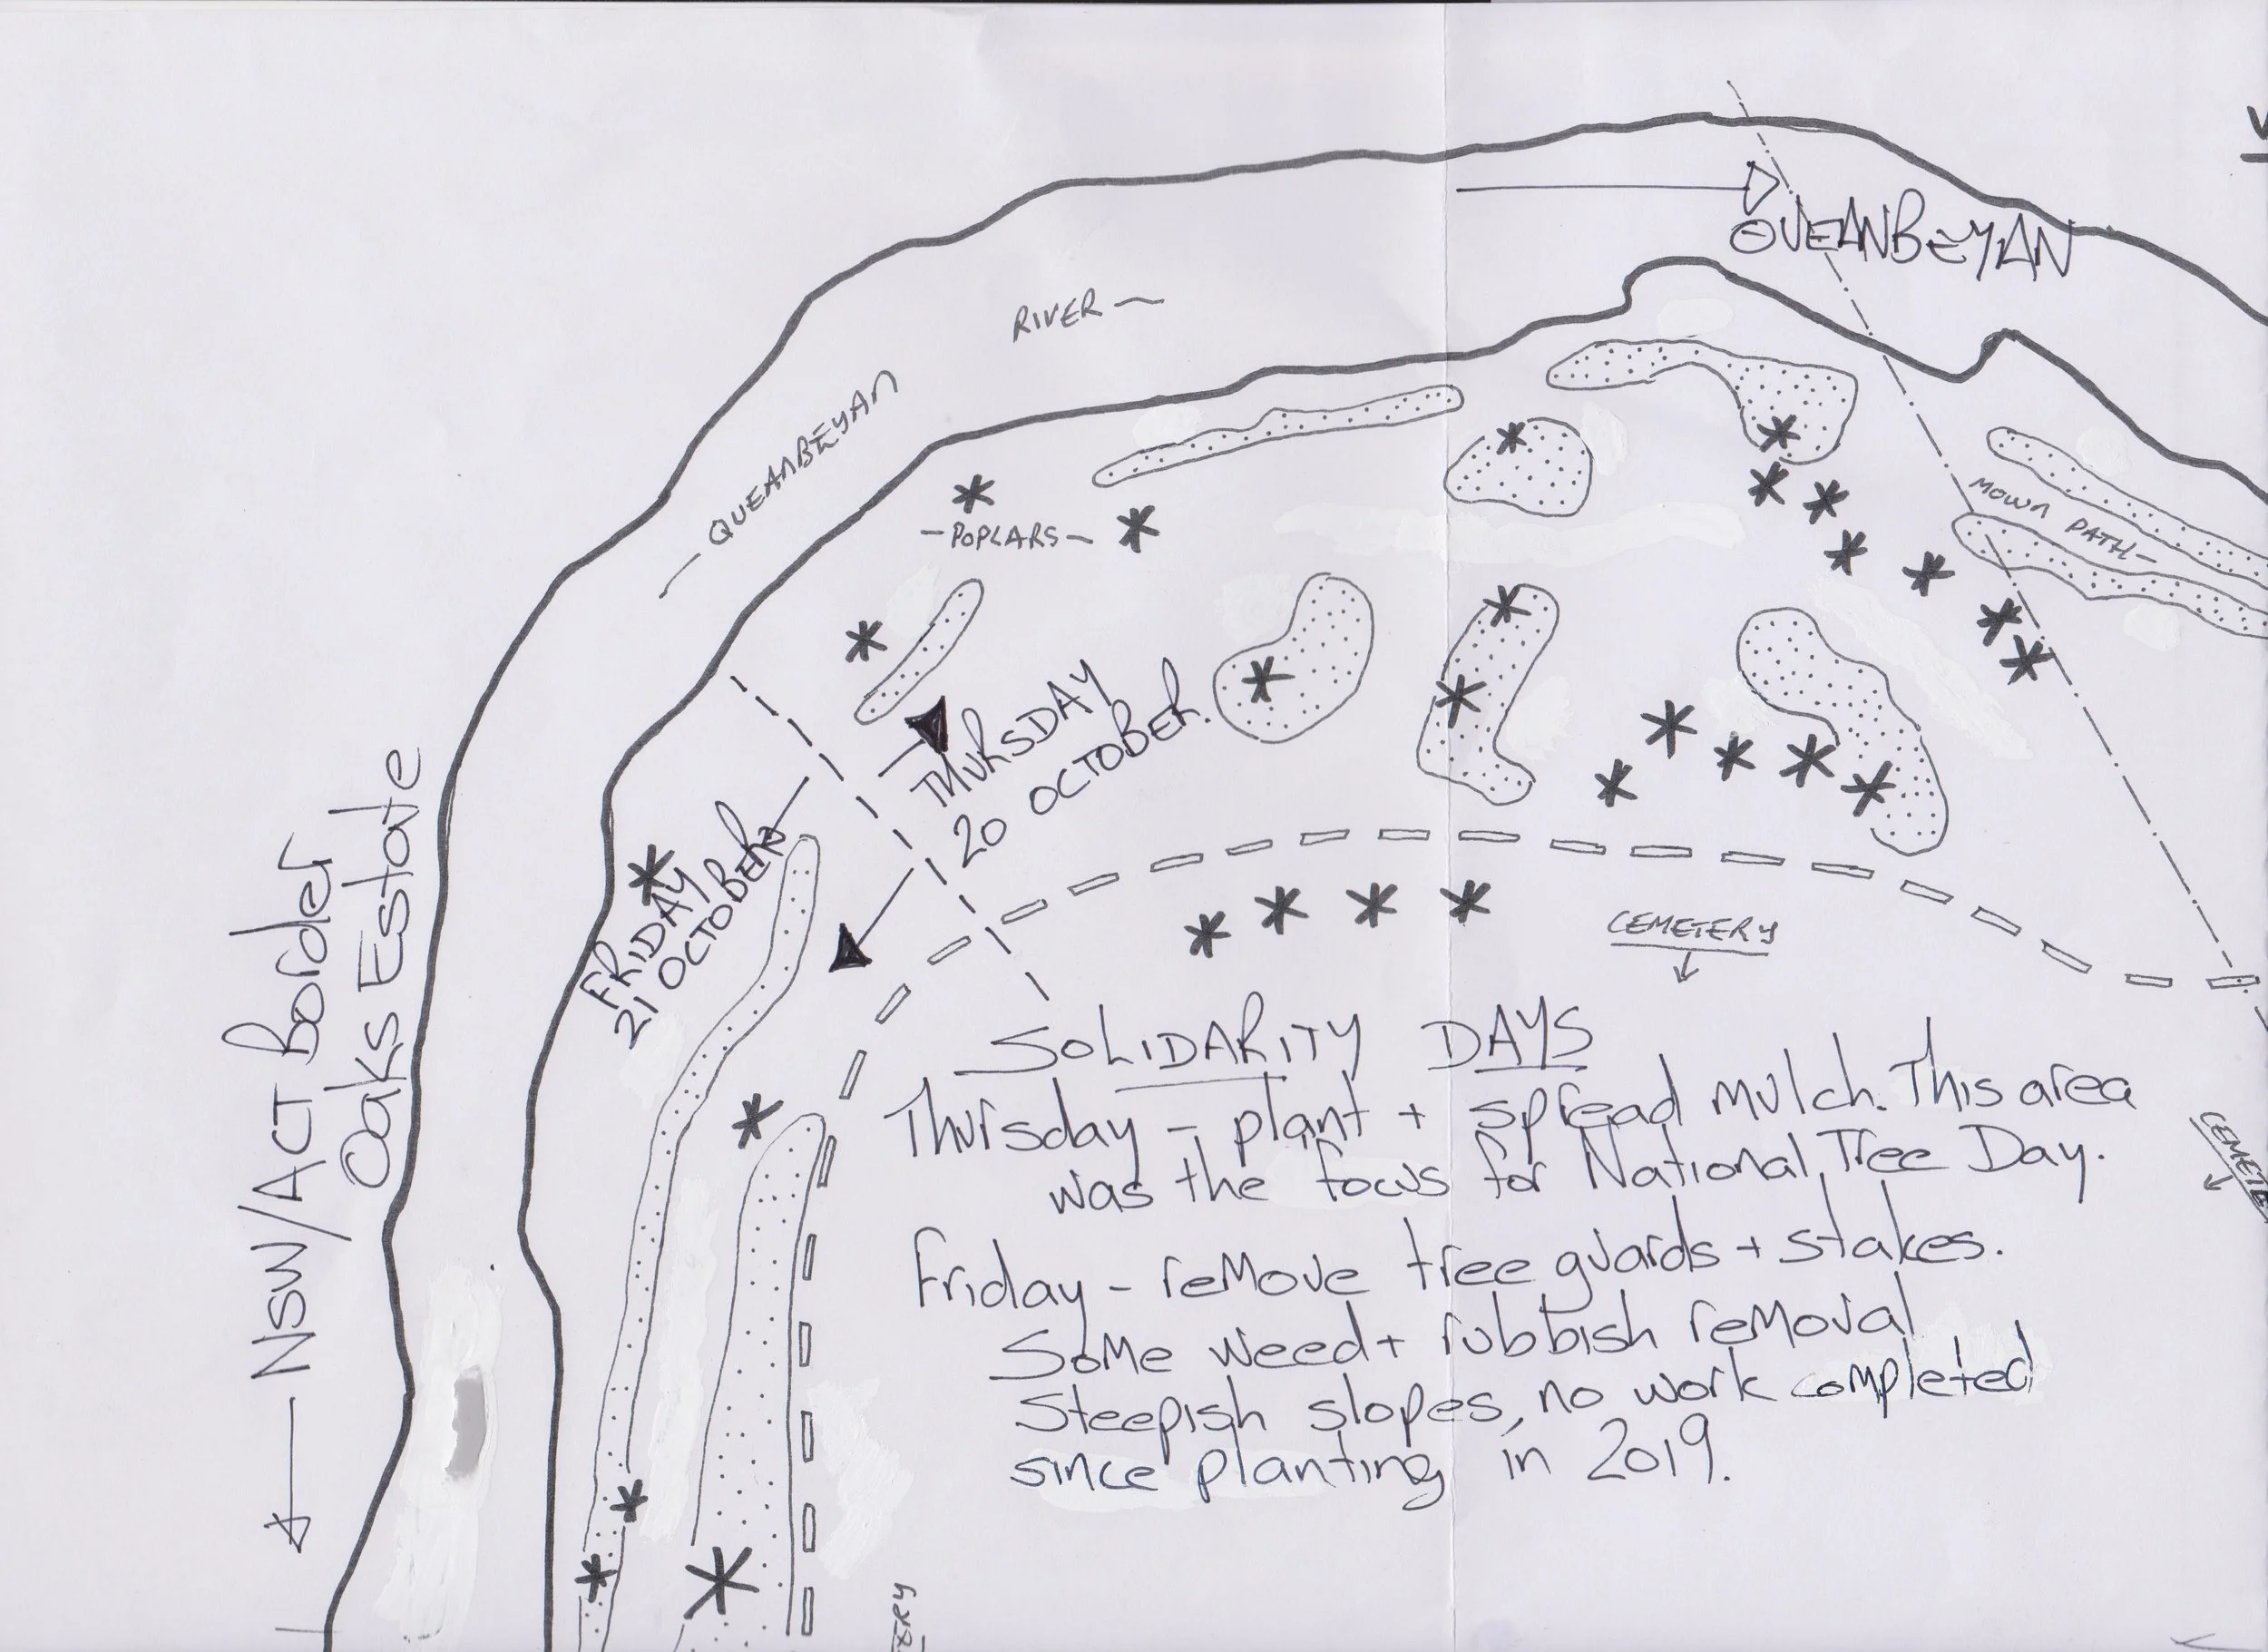 QUEANBEYAN
RIVER
QUEANBEYAN
MOWN PATH
POPLARS
THURSDAY
20 OCTOBER.
FRIDAY
21 OCTOBER
NSW/ACT Border
Oaks Estate
CEMETERY
SOLIDARITY DAYS
Thursday - plant + spread mulch. This area
was the focus for National Tree Day.
Friday - remove tree guards + stakes.
Some weed + rubbish removal
Steepish slopes, no work completed
since planting in 2019.